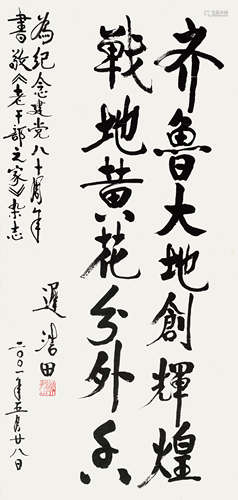 齐鲁大地創輝煌
戰地黄花分外香
為纪念建党八十周年
書敬《老干部之家》杂志
遲浩田
二〇〇一年五月廿八日